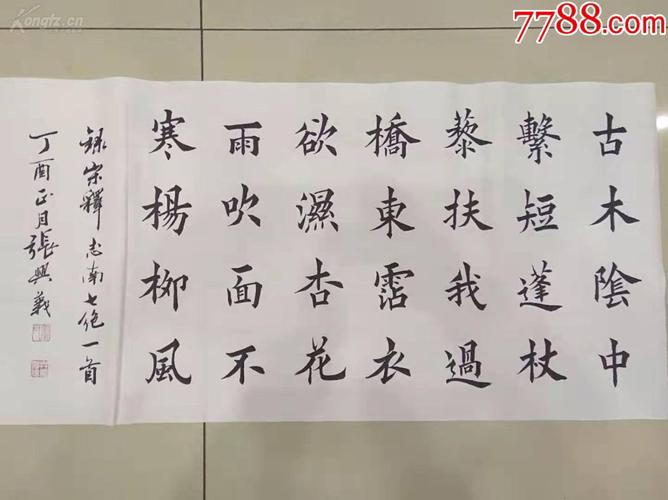 Kongfz.cn
7788.com
古木陰中
繫短蓬杖
藜扶我過
橋東霑衣
欲濕杏花
雨吹面不
寒楊柳風
録宋釋志南七絶一首
丁酉正月張興義